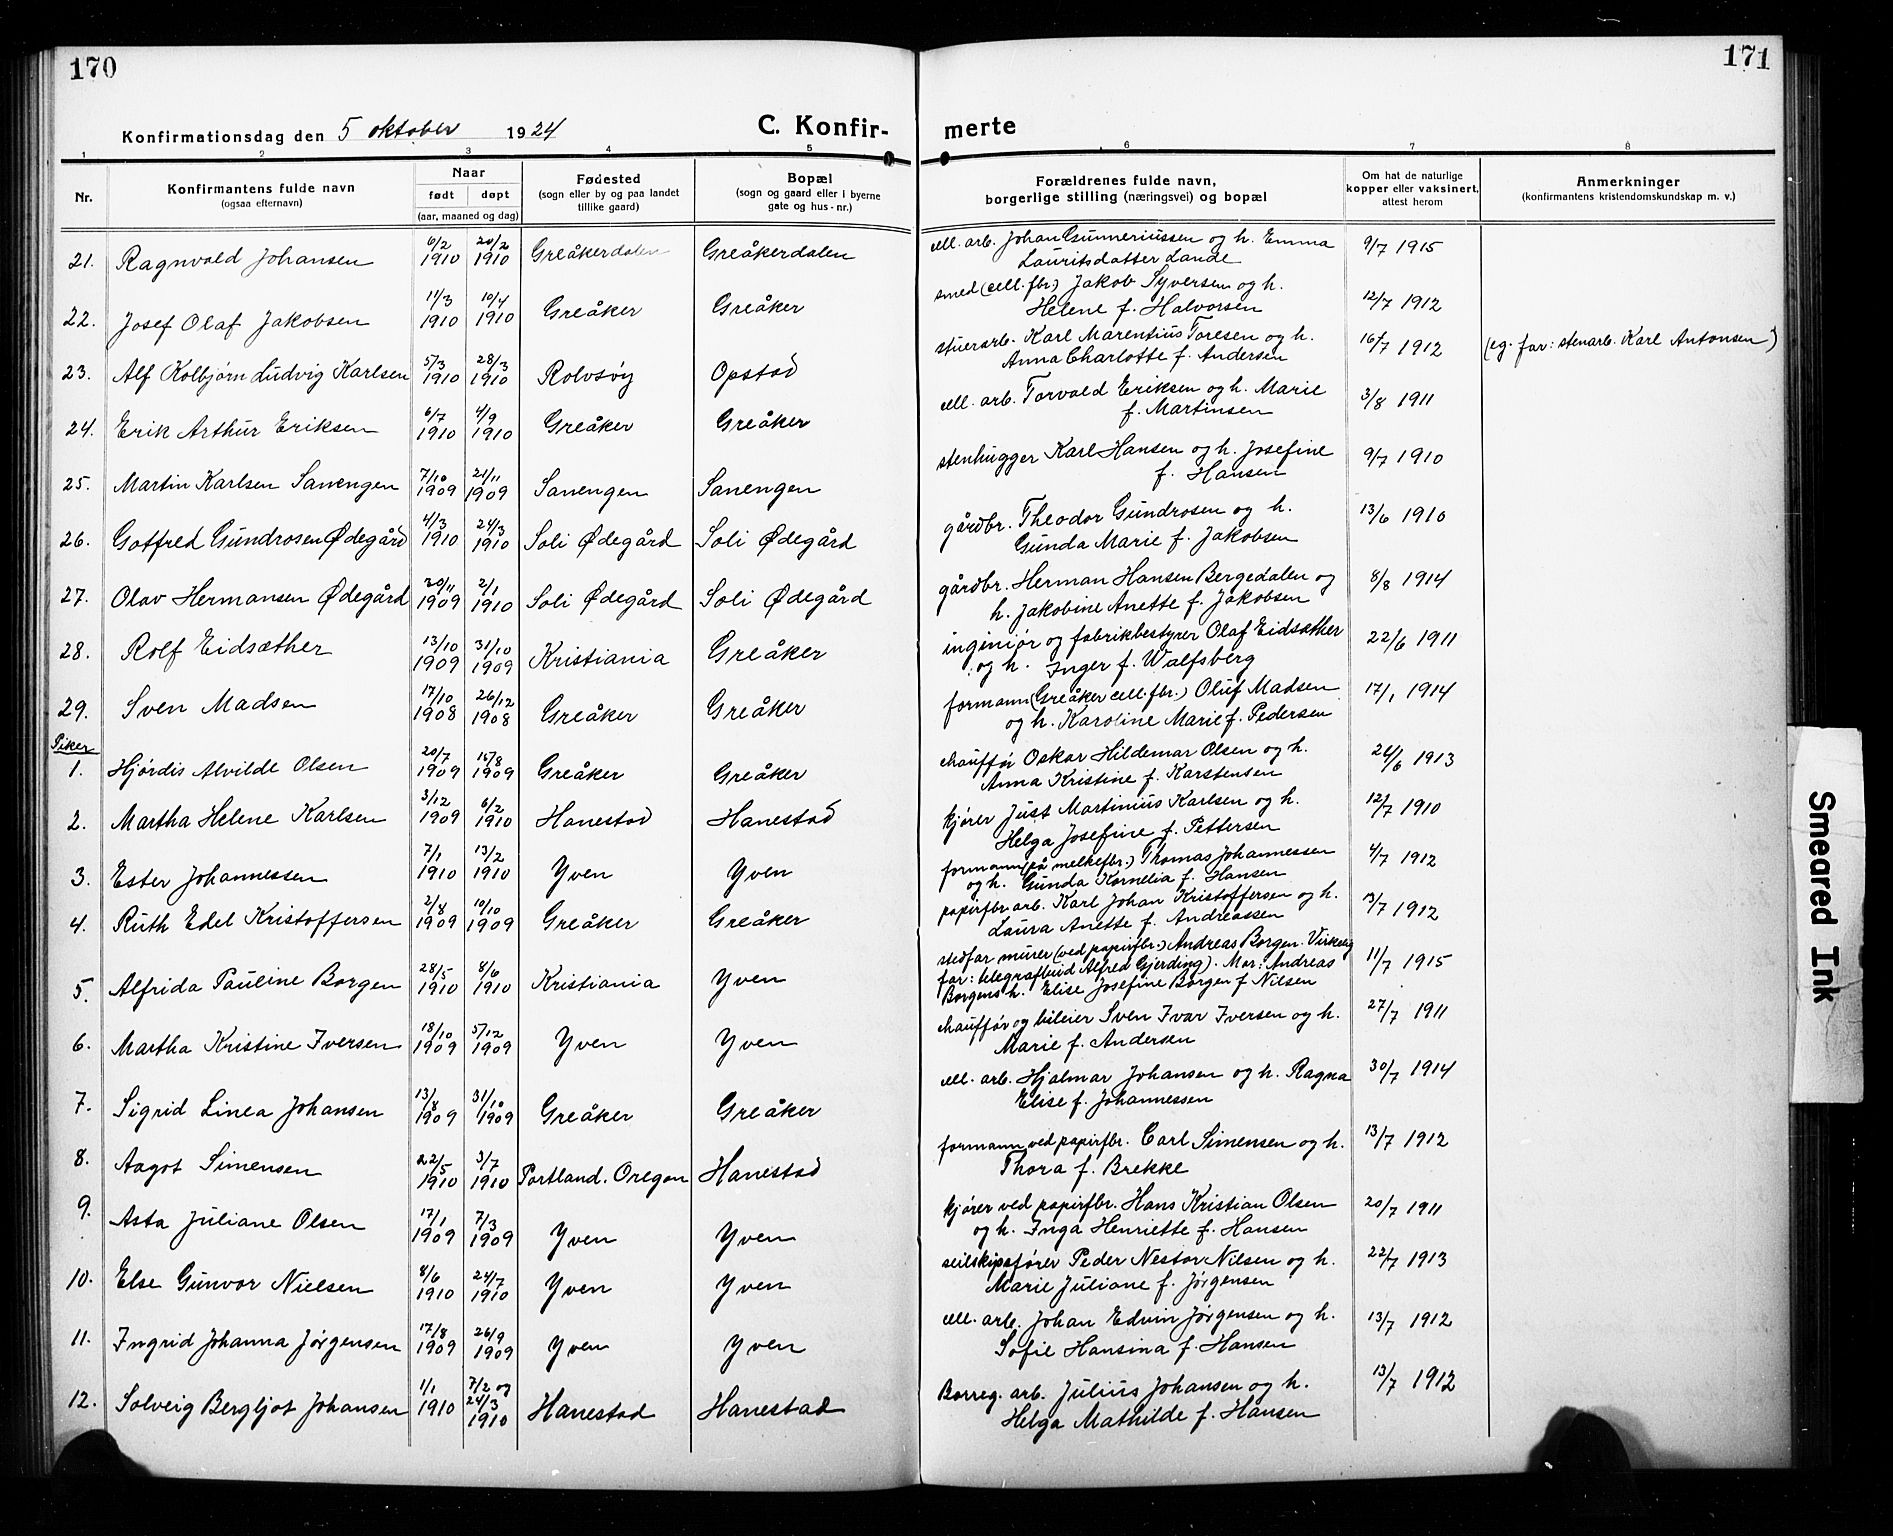 170
171
Konfirmationsdag den 5 oktober 1924
C. Konfir-
merte
1 2 3 4 5 6 7 8
Nr.
Konfirmantens fulde navn
(ogsaa efternavn)
Naar
født døpt
(aar, maaned og dag)
Fødested
(sogn eller by og paa landet
tillike gaard)
Bopæl
(sogn og gaard eller i byerne
gate og hus-nr.)
Forældrenes fulde navn,
borgerlige stilling (næringsvei) og bopæl
Om hat de naturlige
kopper eller vaksinert,
attest herom
Anmerkninger
(konfirmantens kristendomskundskap m. v.)
21. Ragnvald Johansen 6/2 1910 20/2 1910 Greåkerdalen Greåkerdalen cell. arb. Johan Gunneriussen og h. Emma 9/7 1915
Lauritsdatter Lande
22. Josef Olaf Jakobsen 11/3 1910 10/4 1910 Greåker Greåker smed (cell. fbr.) Jakob Syversen og h. 12/7 1912
Helene f. Halvorsen
23. Alf Kolbjørn Ludvig Karlsen 5/3 1910 28/3 1910 Rolvsøy Opstad stuerarb. Karl Marentius Toresen og h. 16/7 1912 (eg. far: stenarb. Karl Antonsen)
Anna Charlotte f. Andersen
24. Erik Arthur Eriksen 6/7 1910 4/9 1910 Greåker Greåker cell. arb. Torvald Eriksen og h. Marie 3/8 1911
f. Martinsen
25. Martin Karlsen Sanengen 7/10 1909 21/11 1909 Sanengen Sanengen stenhugger Karl Hansen og h. Josefine 9/7 1910
f. Hansen
26. Gotfred Gundrosen Ødegård 4/3 1910 24/3 1910 Soli Ødegård Soli Ødegård gårdbr. Theodor Gundrosen og h. 13/6 1910
Gunda Marie f. Jakobsen
27. Olav Hermansen Ødegård 20/11 1909 2/1 1910 Soli Ødegård Soli Ødegård gårdbr. Herman Hansen Bergedalen og 8/8 1914
h. Jakobine Anette f. Jakobsen
28. Rolf Eidsæther 13/10 1909 31/10 1909 Kristiania Greåker ingeniør og fabrikbestyrer Olaf Eidsæther 22/6 1911
og h. Inger f. Walfsberg
29. Sven Madsen 17/10 1908 26/12 1908 Greåker Greåker formann (Greåker cell. fbr.) Oluf Madsen 17/1 1914
og h. Karoline Marie f. Pedersen
Piker
1. Hjørdis Alvilde Olsen 20/7 1909 15/8 1909 Greåker Greåker chauffør Oskar Hildemar Olsen og h. 24/6 1913
Anna Kristine f. Karstensen
2. Martha Helene Karlsen 3/12 1909 6/2 1910 Hanestad Hanestad kjører Just Martinius Karlsen og h. 12/7 1910
Helga Josefine f. Pettersen
3. Ester Johannessen 7/1 1910 13/2 1910 Yven Yven formann (på melkefbr.) Thomas Johannessen 4/7 1912
og h. Gunda Kornelia f. Hansen
4. Ruth Edel Kristoffersen 2/8 1909 10/10 1909 Greåker Greåker papirfbr. arb. Karl Johan Kristoffersen og h. 13/7 1912
Laura Anette f. Andreassen
5. Alfrida Pauline Borgen 28/5 1910 8/6 1910 Kristiania Yven stedfar murer (ved papirfbr.) Andreas Borgen. Virkelig 11/7 1915
far: telegrafbud Alfred Gjerding). Mor: Andreas
Borgens h. Elise Josefine Borgen f Nilsen
6. Martha Kristine Iversen 18/10 1909 5/12 1909 Yven Yven chauffør og bileier Sven Ivar Iversen og h. 27/7 1911
Marie f. Andersen
7. Sigrid Linea Johansen 13/8 1909 31/10 1909 Greåker Greåker cell. arb. Hjalmar Johansen og h. Ragna 30/7 1914
Elise f. Johannessen
8. Aagot Simensen 22/5 1910 3/7 1910 Portland. Oregon Hanestad formann ved papirfbr. Carl Simensen og h. 13/7 1912
Thora f. Brekke
9. Asta Juliane Olsen 17/1 1909 7/3 1909 Yven Yven kjører ved papirfbr. Hans Kristian Olsen 20/7 1911
og h. Inga Henriette f. Hansen
10. Else Gunvor Nielsen 8/6 1910 24/7 1910 Yven Yven seilskipsfører Peder Nestor Nilsen og h. 22/7 1913
Marie Juliane f. Jørgensen
11. Ingrid Johanna Jørgensen 17/8 1909 26/9 1909 Yven Yven cell. arb. Johan Edvin Jørgensen og h. 13/7 1912
Sofie Hansina f. Hansen
12. Solveig Bergljot Johansen 1/1 1910 7/2 og 24/3 1910 Hanestad Hanestad Borreg. arb. Julius Johansen og h. 13/7 1912
Helga Mathilde f. Hansen
Smeared Ink